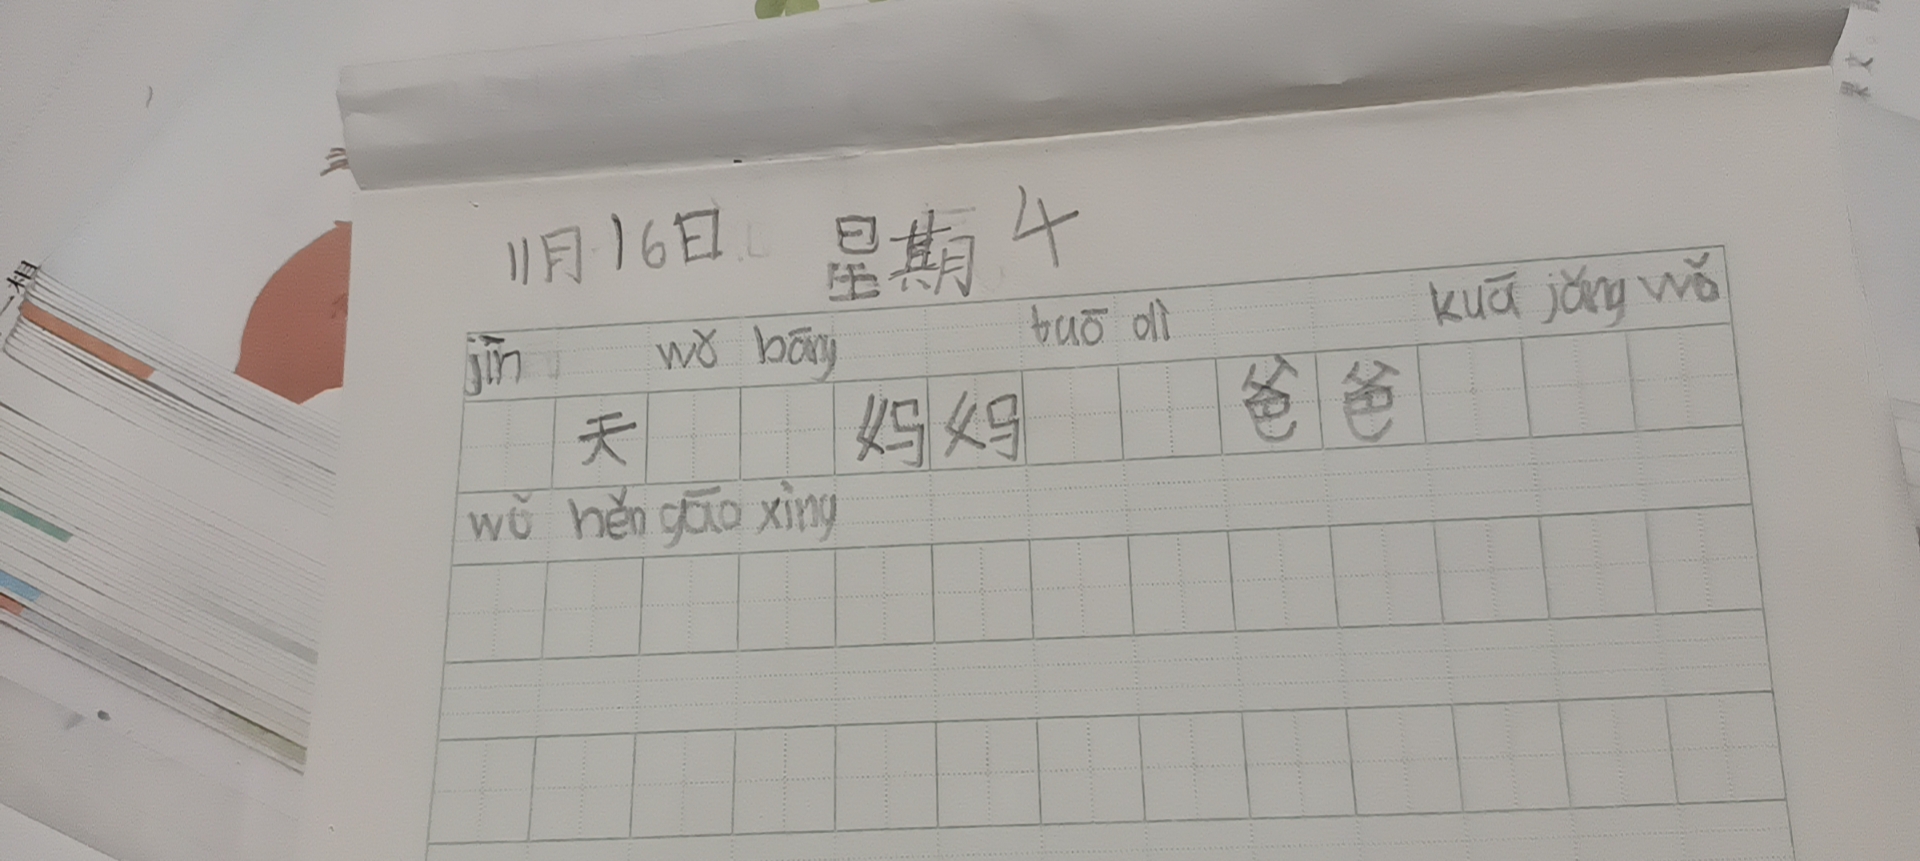 11月16日 星期4
jīn wǒ bāng tuō dì kuā jǎng wǒ
天 妈妈 爸爸
wǒ hěn gāo xìng